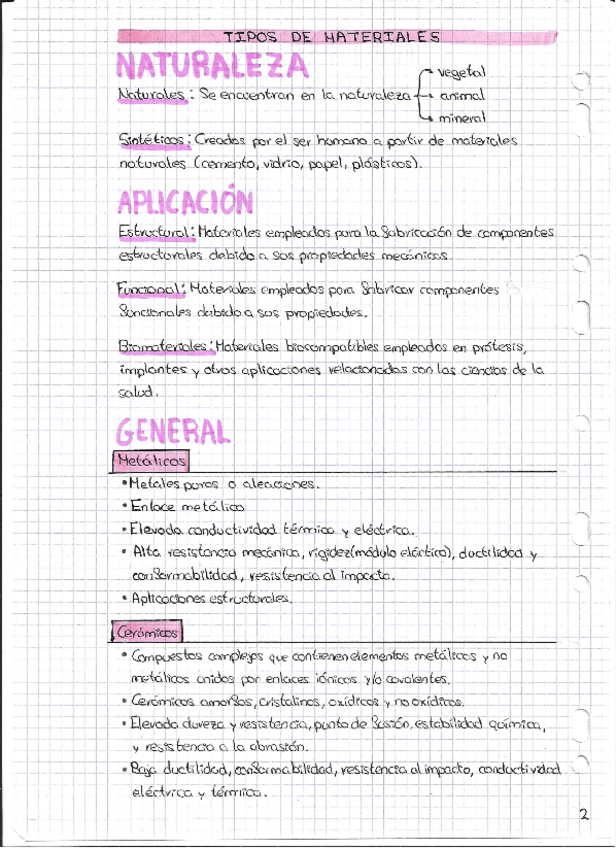 TIPOS DE MATERIALES
NATURALEZA
vegetal
Naturales: Se encuentran en la naturaleza animal
mineral
Sintéticos: Creados por el ser humano a partir de materiales
naturales (cemento, vidrio, papel, plásticos).
APLICACIÓN
Estructural: Materiales empleados para la fabricación de componentes
estructurales debido a sus propiedades mecánicas.
Funcional: Materiales empleados para fabricar componentes
funcionales debido a sus propiedades.
Biomateriales: Materiales biocompatibles empleados en prótesis,
implantes y otras aplicaciones relacionadas con las ciencias de la
salud.
GENERAL
Metálicos
• Metales puros o aleaciones.
• Enlace metálico
• Elevada conductividad térmica y eléctrica.
• Alta resistencia mecánica, rigidez (módulo elástico), ductilidad y
conformabilidad, resistencia al impacto.
• Aplicaciones estructurales.
Cerámicos
• Compuestos complejos que contienen elementos metálicos y no
metálicos unidos por enlaces iónicos y/o covalentes.
• Cerámicos amorfos, cristalinos, oxídicos y no oxídicos.
• Elevada dureza y resistencia, punto de fusión, estabilidad química,
y resistencia a la abrasión.
• Baja ductilidad, conformabilidad, resistencia al impacto, conductividad
eléctrica y térmica.
2